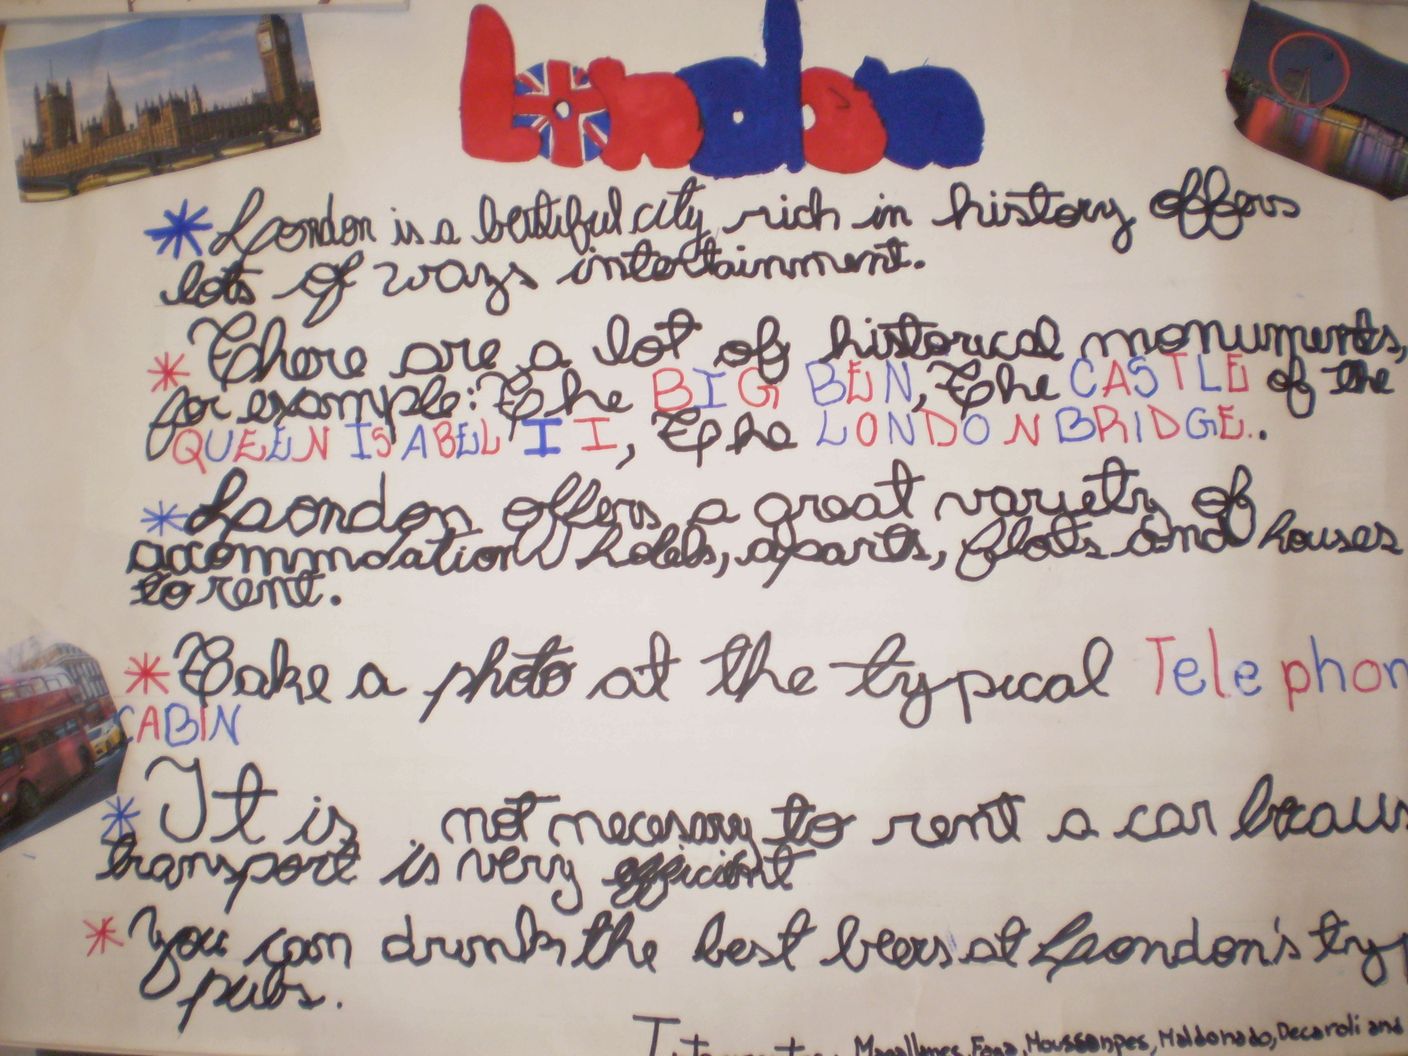 London
* London is a beatiful city rich in history offers
lots of ways intertainment.
* There are a lot of historical monuments,
for example: The BIG BEN, The CASTLE of the
QUEEN ISABEL II, The LONDON BRIDGE..
* London offers a great variety of
accommodation hotels, aparts, flats and houses
to rent.
* Take a photo at the typical Telephon
CABIN
* It is not necesary to rent a car becaus
transport is very efficient
* You can drink the best beers at London's typ
pubs.
Magallanes, Faga, Moussompes, Maldonado, Decaroli and